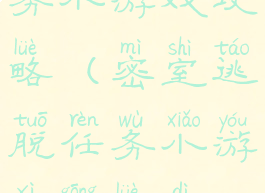 务小游戏攻
lüè mì shì táo
略（密室逃
tuō rèn wù xiǎo yóu
脱任务小游
xì gōng lüè dì